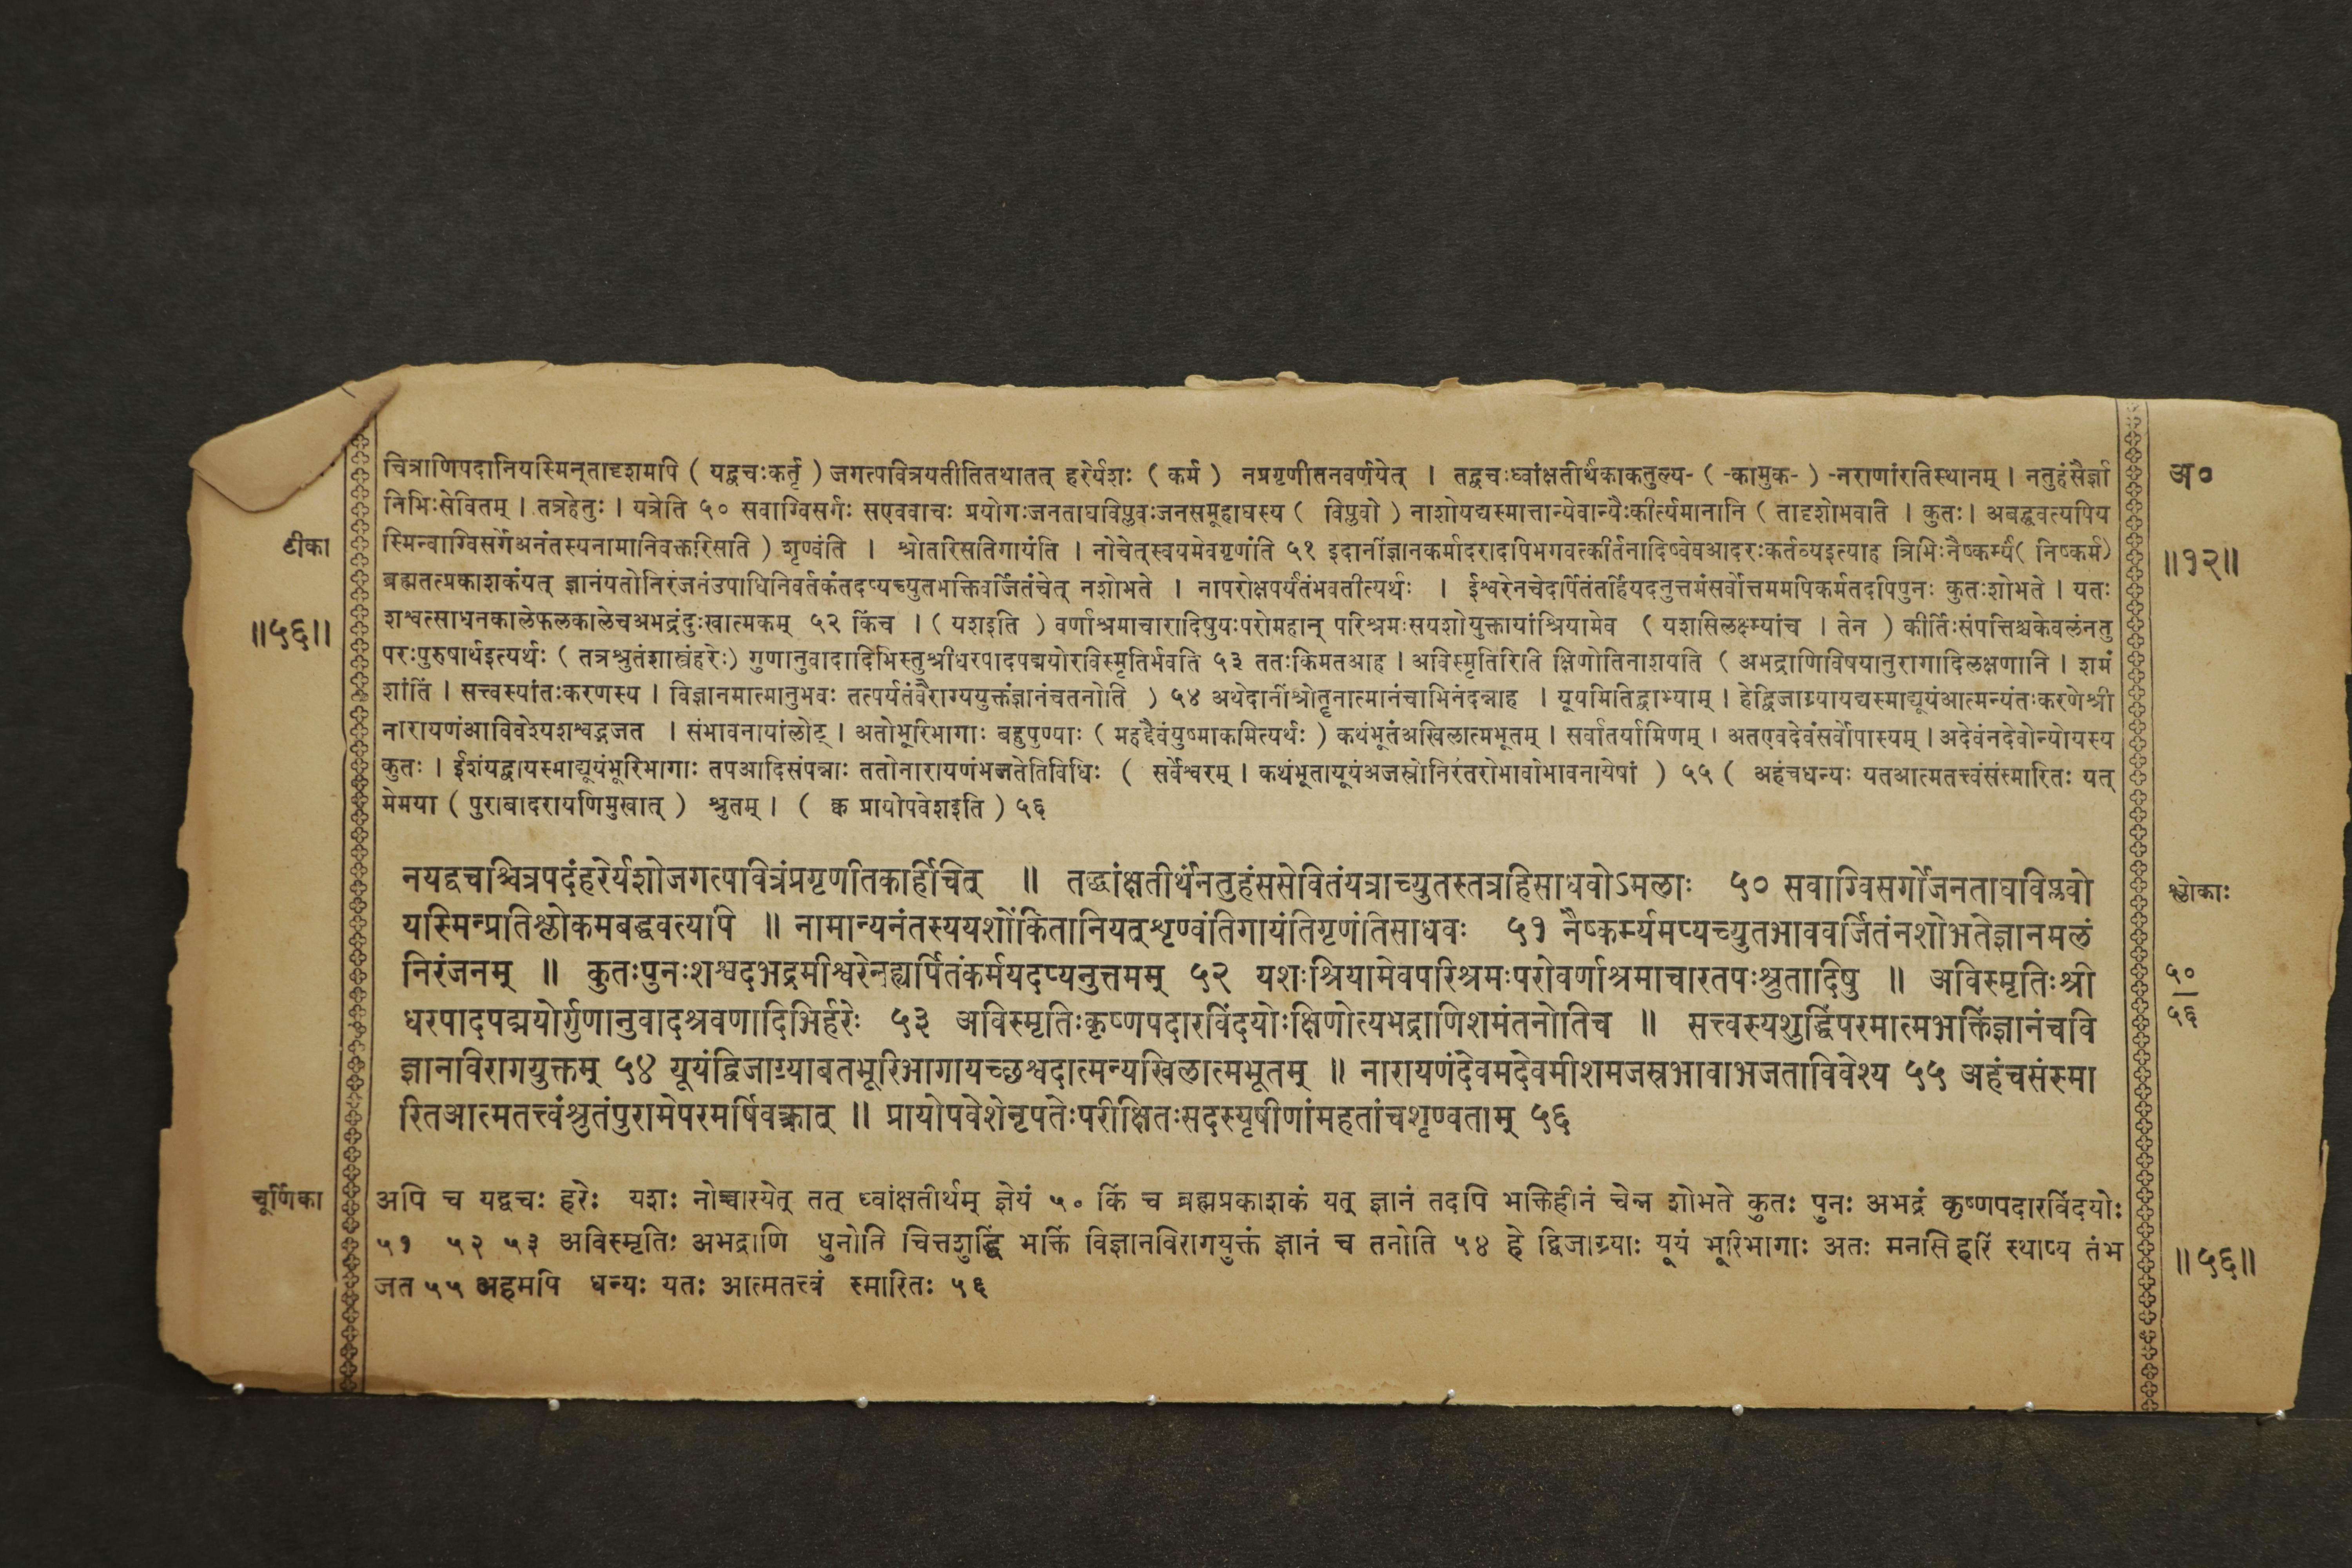 चित्राणिपदानियस्मिन्तादृशमपि ( यद्वचःकर्तृ ) जगत्पवित्रयतीतितथातत् हरेर्यशः ( कर्म ) नप्रगृणीतनवर्णयेत् । तद्वचःध्वांक्षतीर्थंकाकतुल्य- ( -कामुक- ) -नराणांरतिस्थानम् । नतुहंसैर्ज्ञा
अ०
निभिःसेवितम् । तत्रहेतुः । यत्रेति ५० सवाग्विसर्गः सएववाचः प्रयोगःजनताघविप्लवःजनसमूहाघस्य ( विप्लवो ) नाशोयद्यस्मात्तान्येवान्यैःकीर्त्यमानानि ( तादृशोभवति । कुतः । अबद्धवत्यपिय
टीका
स्मिन्वाग्विसर्गेअनंतस्यनामानिवक्तरिसति ) शृण्वंति । श्रोतरिसतिगायंति । नोचेत्स्वयमेवगृणंति ५१ इदानींज्ञानकर्मादरादपिभगवत्कीर्तनादिष्वेवआदरःकर्तव्यइत्याह त्रिभिःनैष्कर्म्यं( निष्कर्म)
॥१२॥
ब्रह्मतत्प्रकाशकंयत् ज्ञानंयतोनिरंजनंउपाधिनिवर्तकंतदप्यच्युतभक्तिवर्जितंचेत् नशोभते । नापरोक्षपर्यंतंभवतीत्यर्थः । ईश्वरेनचेदर्पितंतर्हियदनुत्तमंसर्वोत्तममपिकर्मतदपिपुनः कुतःशोभते । यतः
॥५६॥
शश्वत्साधनकालेफलकालेचअभद्रंदुःखात्मकम् ५२ किंच । ( यशइति ) वर्णाश्रमाचारादिषुयःपरोमहान् परिश्रमःसयशोयुक्तायांश्रियामेव ( यशसिलक्ष्म्यांच । तेन ) कीर्तिःसंपत्तिश्चकेवलंनतु
परःपुरुषार्थइत्यर्थः ( तत्रश्रुतंशास्त्रंहरेः) गुणानुवादादिभिस्तुश्रीधरपादपद्मयोरविस्मृतिर्भवति ५३ ततःकिमतआह । अविस्मृतिरिति क्षिणोतिनाशयति ( अभद्राणिविषयानुरागादिलक्षणानि । शमं
शांतिं । सत्त्वस्यांतःकरणस्य । विज्ञानमात्मानुभवः तत्पर्यंतंवैराग्ययुक्तंज्ञानंचतनोति ) ५४ अथेदानींश्रोतॄनात्मानंचाभिनंदन्नाह । यूयमितिद्वाभ्याम् । हेद्विजाग्र्यायद्यस्माद्यूयंआत्मन्यंतःकरणेश्री
नारायणंआविवेश्यशश्वद्भजत । संभावनायांलोट् । अतोभूरिभागाः बहुपुण्याः ( महद्दैवंयुष्माकमित्यर्थः ) कथंभूतंअखिलात्मभूतम् । सर्वांतर्यामिणम् । अतएवदेवंसर्वोपास्यम् । अदेवंनदेवोन्योयस्य
कुतः । ईशंयद्वायस्माद्यूयंभूरिभागाः तपआदिसंपन्नाः ततोनारायणंभजतेतिविधिः ( सर्वेश्वरम् । कथंभूतायूयंअजस्रोनिरंतरोभावोभावनायेषां ) ५५ ( अहंचधन्यः यतआत्मतत्त्वंसंस्मारितः यत्
मेमया ( पुराबादरायणिमुखात् ) श्रुतम् । ( क्व प्रायोपवेशइति ) ५६
नयद्वचश्चित्रपदंहरेर्यशोजगत्पवित्रंप्रगृणीतकर्हिचित् ॥ तद्ध्वांक्षतीर्थंनतुहंससेवितंयत्राच्युतस्तत्रहिसाधवोऽमलाः ५० सवाग्विसर्गोजनताघविप्लवो
श्लोकाः
यस्मिन्प्रतिश्लोकमबद्धवत्यपि ॥ नामान्यनंतस्ययशोंकितानियत्शृण्वंतिगायंतिगृणंतिसाधवः ५१ नैष्कर्म्यमप्यच्युतभाववर्जितंनशोभतेज्ञानमलं
निरंजनम् ॥ कुतःपुनःशश्वदभद्रमीश्वरेनह्यर्पितंकर्मयदप्यनुत्तमम् ५२ यशःश्रियामेवपरिश्रमःपरोवर्णाश्रमाचारतपःश्रुतादिषु ॥ अविस्मृतिःश्री
५०
५६
धरपादपद्मयोर्गुणानुवादश्रवणादिभिर्हरेः ५३ अविस्मृतिःकृष्णपदारविंदयोःक्षिणोत्यभद्राणिशमंतनोतिच ॥ सत्त्वस्यशुद्धिंपरमात्मभक्तिंज्ञानंचवि
ज्ञानविरागयुक्तम् ५४ यूयंद्विजाग्र्याबतभूरिभागायच्छश्वदात्मन्यखिलात्मभूतम् ॥ नारायणंदेवमदेवमीशमजस्रभावाभजताविवेश्य ५५ अहंचसंस्मा
रितआत्मतत्त्वंश्रुतंपुरामेपरमर्षिवक्त्रात् ॥ प्रायोपवेशेनृपतेःपरीक्षितःसदस्यृषीणांमहतांचशृण्वताम् ५६
चूर्णिका
अपि च यद्वचः हरेः यशः नोच्चास्येत् तत् ध्वांक्षतीर्थम् ज्ञेयं ५० किं च ब्रह्मप्रकाशकं यत् ज्ञानं तदपि भक्तिहीनं चेन्न शोभते कुतः पुनः अभद्रं कृष्णपदारविंदयोः
५१ ५२ ५३ अविस्मृतिः अभद्राणि धुनोति चित्तशुद्धिं भक्तिं विज्ञानविरागयुक्तं ज्ञानं च तनोति ५४ हे द्विजाग्र्याः यूयं भूरिभागाः अतः मनसि हरिं स्थाप्य तंभ
॥५६॥
जत ५५ अहमपि धन्यः यतः आत्मतत्त्वं स्मारितः ५६